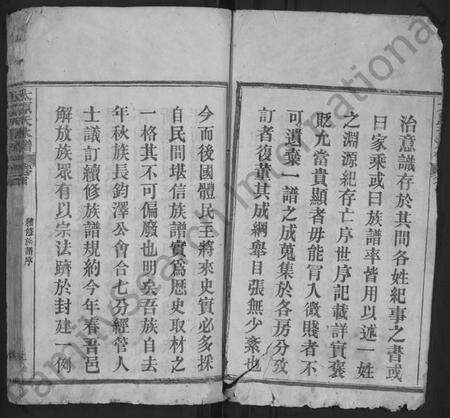 治意識存於其間各姓紀事之書或
曰家乘或曰族譜率皆用以述一姓
之淵源紀存亡序世序記載詳實褒
貶允當貴顯者毋能冒入微賤者不
可遺棄一譜之成蒐集於各房分攷
訂者復董其成綱舉目張無少紊也
今而後國體民主將來史實必多採
自民間堪信族譜實爲歷史取材之
一格其不可偏廢也明矣吾族自去
年秋族長鈞澤公會合七分經管人
士議訂續修族譜規約今年春吾邑
解放族眾有以宗法躋於封建一例
續修族譜序
FamilySearch International